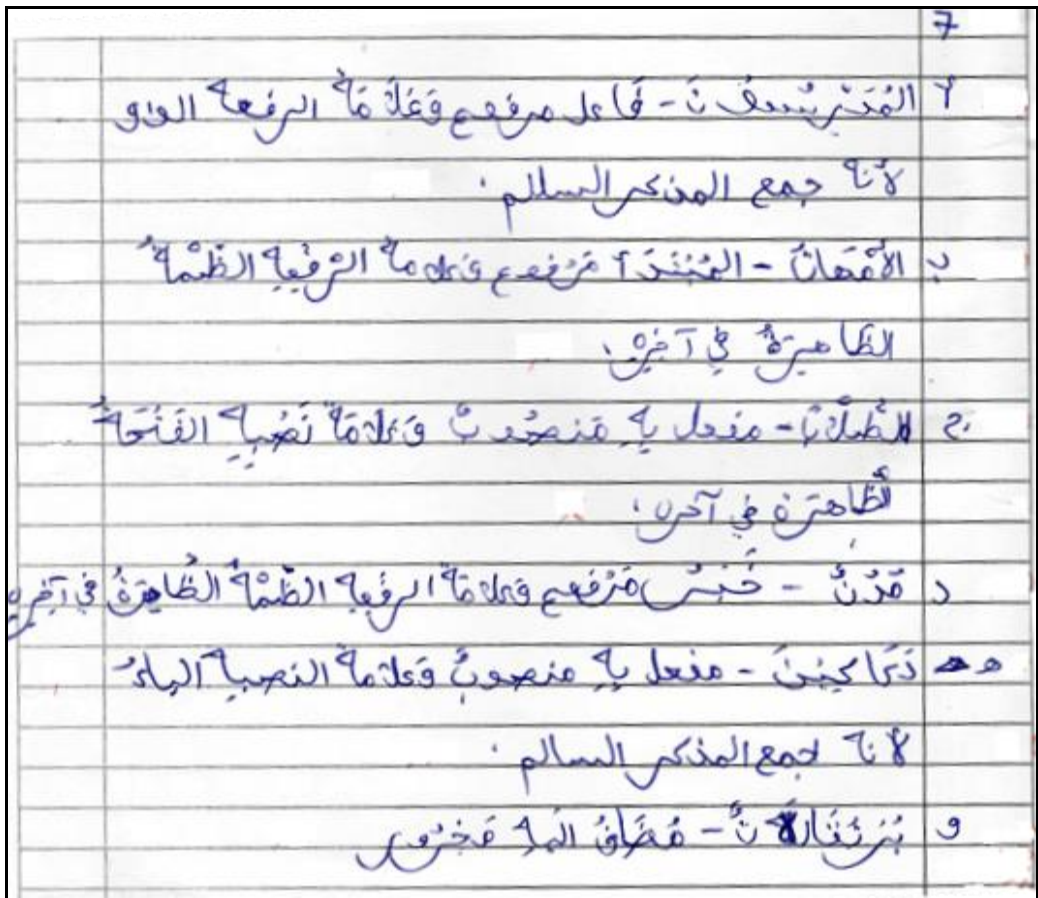 7
أ المُدَرِّسُونَ - فَاعل مرفوع وَعَلاَمَةُ الرفعه الواو
لأنه جمع المذكر السالم.
ب الأُمَّهاتُ - المُبْتَدَأ مَرْفوع وَعلامةُ الرَّفْعِهِ الظَّمَةُ
الظَاهِيرَةُ فِي آخِرِهِ.
ج الطُّلاَّبَ - مفعل بِهِ مَنصُوبٌ وَعَلاَمَةُ نَصْبِهِ الفَتْحَةُ
ظَاهرَة في آخره.
د مُدُنٌ - خَبَرٌ مَرْفوع وَعلامَةُ الرفعِهِ الظَّمَةُ الظَاهِرَةُ فِي آخِرِهِ
ه مفعل بِهِ منصوبٌ وَعَلامةُ النصبِهِ الياءُ
لأنه جمع المذكر السالم.
و مُضَافُ الَيهِ مَجْرُور